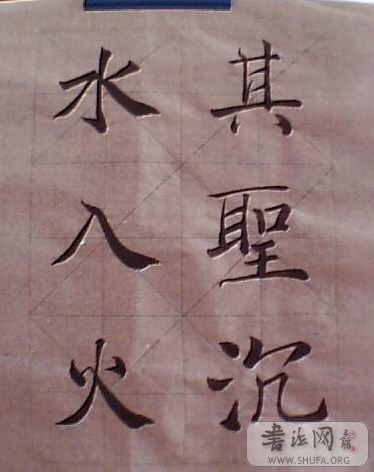 其聖沉
水入火
書法网
WWW.SHUFA.ORG